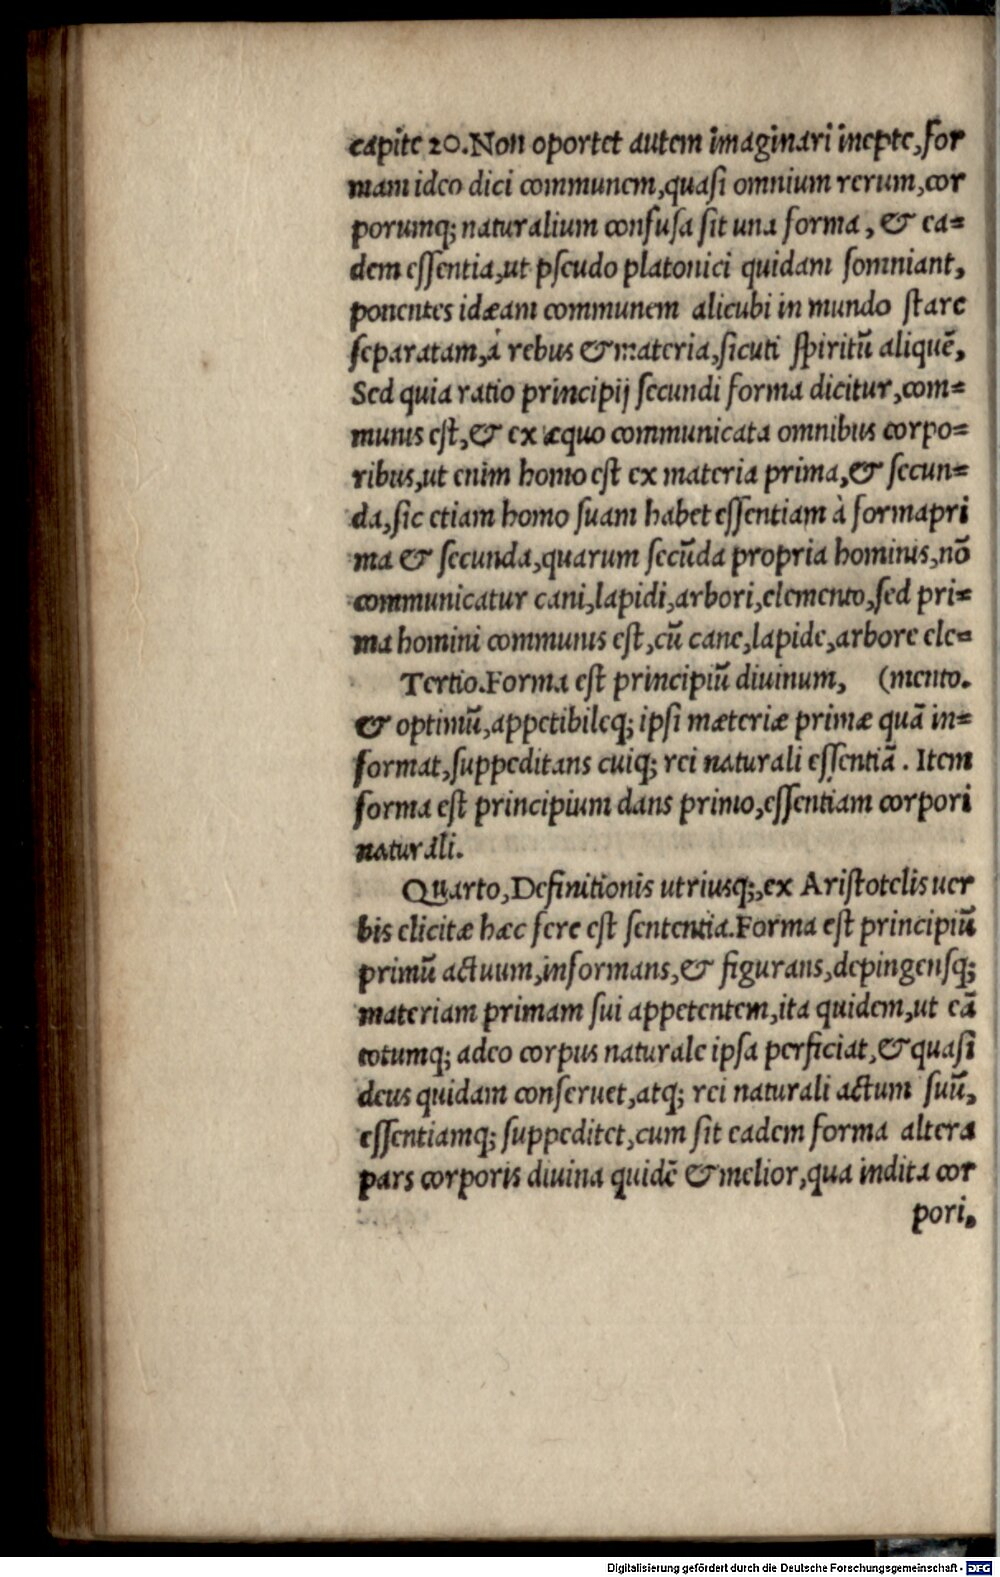 capite 20. Non oportet autem imaginari inepte, for
mam ideo dici communem, quasi omnium rerum, cor
porumq; naturalium confusa sit una forma, & ea=
dem essentia, ut pseudo platonici quidam somniant,
ponentes idæam communem alicubi in mundo stare
separatam, à rebus & materia, sicuti spiritū aliquē,
Sed quia ratio principij secundi forma dicitur, com=
munis est, & ex æquo communicata omnibus corpo=
ribus, ut enim homo est ex materia prima, & secun=
da, sic etiam homo suam habet essentiam à forma pri
ma & secunda, quarum secūda propria hominis, nō
communicatur cani, lapidi, arbori, elemento, sed pri=
ma homini communis est, cū cane, lapide, arbore ele=
Tertio. Forma est principiū diuinum, (mento.
& optimū, appetibileq; ipsi mæteriæ primæ quā in=
format, suppeditans cuiq; rei naturali essentiā. Item
forma est principium dans primo, essentiam corpori
naturali.
Quarto, Definitionis utriusq;, ex Aristotelis uer
bis elicitæ hæc fere est sententia. Forma est principiū
primū actuum, informans, & figurans, depingensq;
materiam primam sui appetentem, ita quidem, ut eā
totumq; adeo corpus naturale ipsa perficiat, & quasi
deus quidam conseruet, atq; rei naturali actum suū,
essentiamq; suppeditet, cum sit eadem forma altera
pars corporis diuina quidē & melior, qua indita cor
pori,
Digitalisierung gefördert durch die Deutsche Forschungsgemeinschaft - DFG